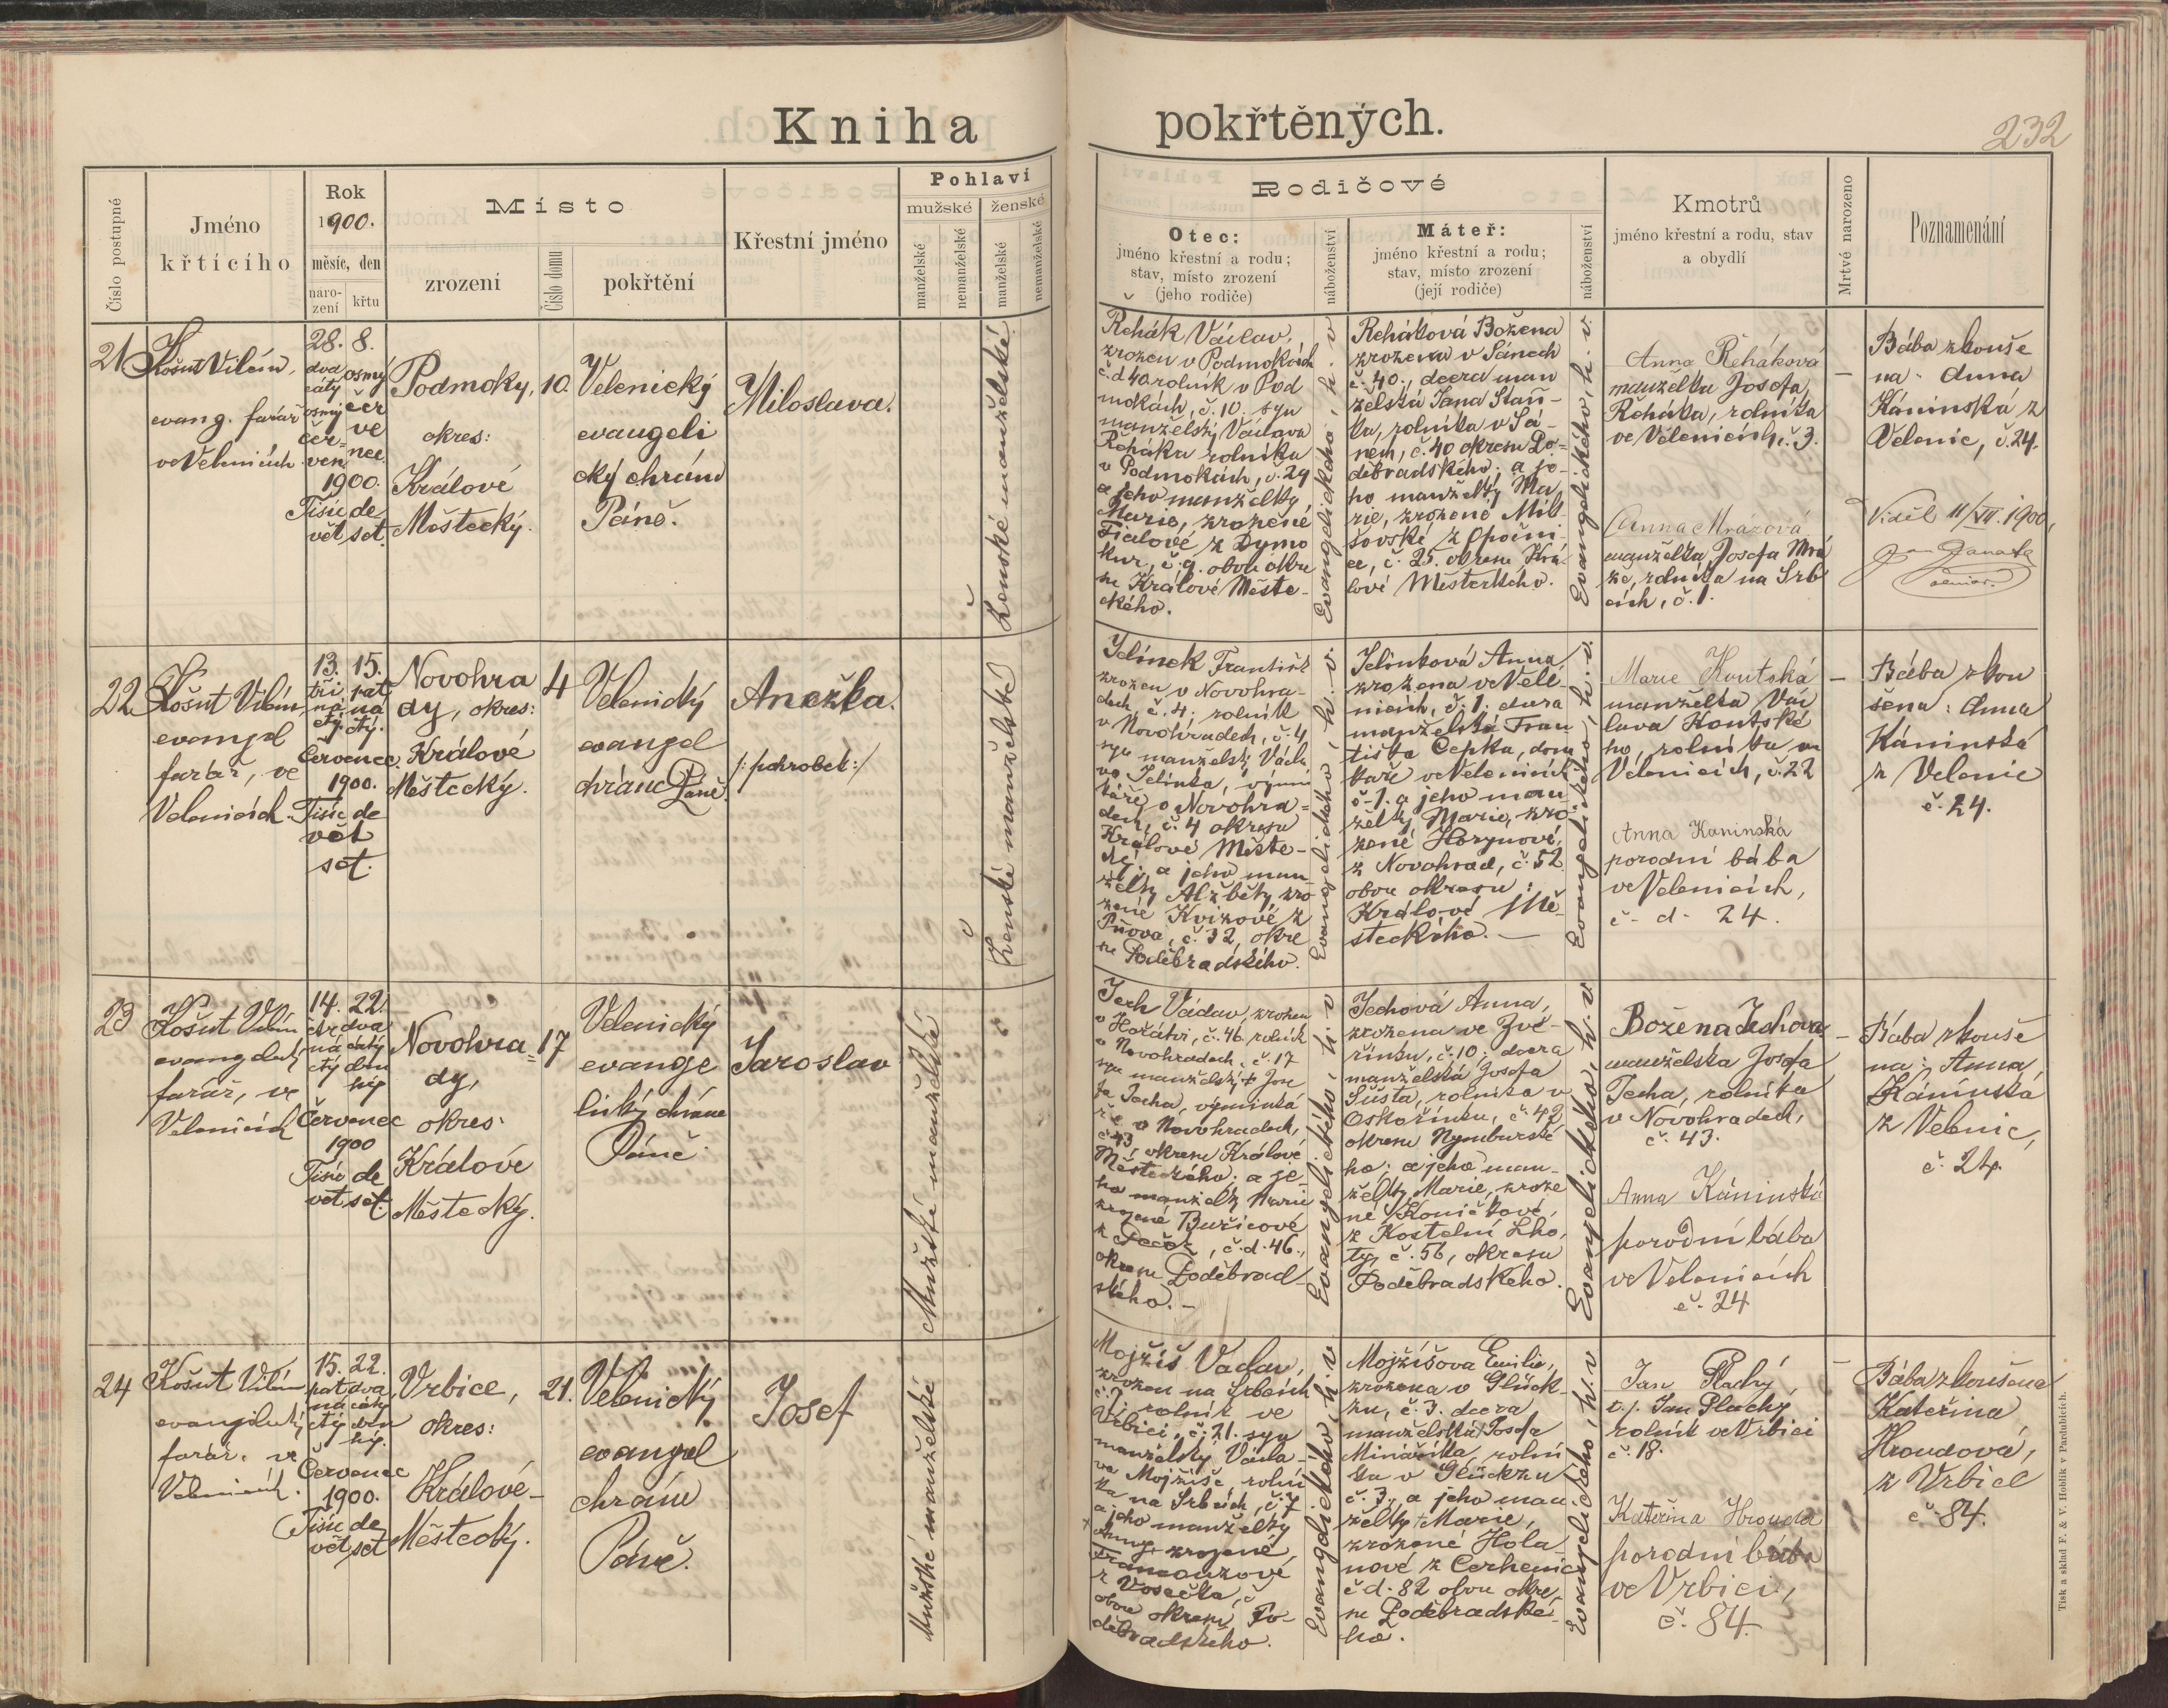 Kniha pokřtěných.
232
Číslo postupné
Jméno
křtícího
Rok
1900.
měsíc, den
naro-
zení
křtu
Místo
zrození
Číslo domu
pokřtění
Křestní jméno
Pohlaví
mužské
ženské
manželské
nemanželské
manželské
nemanželské
Rodičové
Otec:
jméno křestní a rodu;
stav, místo zrození
(jeho rodiče)
náboženství
Máteř:
jméno křestní a rodu;
stav, místo zrození
(její rodiče)
náboženství
Kmotrů
jméno křestní a rodu, stav
a obydlí
Mrtvě narozeno
Poznamenání
21
Košut Vilém,
evang. farář
ve Velenicích.
28. 8.
dva osmý
cátý čer
osmý ve
čer- nce.
ven.
1900.
Tisíc de
vět set.
Podmoky,
okres:
Králové
Městecký.
10.
Velenický
evangeli
cký chrám
Páně.
Miloslava.
Ženské manželské
Řehák Václav,
zrozen v Podmokách
č. d 40. rolník v Pod
mokách, č. 10. syn
manželský Václava
Řeháka rolníka
v Podmokách, č. 29
a jeho manželky
Marie, zrozené
Fialové z Dymo
kur, č. 9. obou okre
su Králové Měste-
ckého.
Evangelického, h. v
Řeháková Božena
zrozena v Sánech
č. 40., dcera man
želská Jana Staň-
ka, rolníka v Sá-
nech, č. 40 okresu Po-
děbradského; a je-
ho manželky Ma
rie, zrozené Mile
šovské z Opočni-
ce, č. 25. okresu Krá-
lové Městeckého.
Evangelického, h. v.
Anna Řeháková
manželka Josefa
Řeháka, rolníka
ve Velenicích, č. 3.
Anna Mrázová
manželka Josefa Mrá
ze, rolníka na Srb
cích, č. 1.
–
Bába zkouše
na: Anna
Káninská z
Velenic, č. 24.
Viděl 11/VII. 1900,
senior.
22
Košut Vilém
evangel
farář, ve
Velenicích.
13. 15.
tři pat
ná ná
ctý. ctý.
Červenec.
1900.
Tisíc de
vět
set.
Novohra
dy, okres:
Králové
Městecký.
4
Velenický
evangel
chrám Páně.
Anežka.
/: pohrobek :/
Ženské manželské
Jelínek František
zrozen v Novohra-
dech, č. 4; rolník
v Novohradech, č. 4
syn manželský Václa
va Jelínka, výmin
káře v Novohra=
dech, č. 4 okresu
Králové Měste-
cký; a jeho man
želky Alžběty, zro
zené Kvízové z
Pňova, č. 32, okre
su Poděbradského.
Evangelického, h. v.
Jelinková Anna,
zrozena ve Vele-
nicích, č. 1; dcera
manželská Fran
tiška Čepka, dom
káře ve Velenicích
č. 1. a jeho man
želky Marie, zro-
zené Horynové,
z Novohrad, č. 52
obou okresu:
Králové Mě-
steckého. –
Evangelického, h. v.
Marie Koutská
manželka Vác
lava Koutské
ho, rolníka ve
Velenicích, č. 22
Anna Kaninská
porodní bába
ve Velenicích,
č. d. 24.
–
Bába zkou
šena: Anna
Káninská
z Velenic
č. 24.
23
Košut Vilém
evangelický
farář, ve
Velenicích
14. 22.
čtr dva
ná cátý
ctý dru
hý
Červenec
1900
Tisíc de
vět set.
Novohra=
dy,
okres:
Králové
Městecký.
17
Velenický
evange
lický chrám
Páně.
Jaroslav
Mužské manželské
Jech Václav, zrozen
v Hořátvi, č. 46. rolník
v Novohradech, č. 17
syn manželský † Jose
fa Jecha, výminká
ře v Novohradech,
č. 43 okresu Králové
Městeckého; a je-
ho manželky Marie
zrozené Buřicové
z Peček, č. d. 46.,
okresu Poděbrad
ského. –
Evangelického, h. v
Jechová Anna,
zrozena ve Zvě-
řínku, č. 10; dcera
manželská Josefa
Šusta, rolníka v
Oskořínku, č. 42
okresu Nymburské
ho; a jeho man-
želky Marie, zroze
né Koničkové,
z Kostelní Lho,
ty, č. 56, okresu
Poděbradského.
Evangelického, h. v
Božena Jechova
manželka Josefa
Jecha, rolníka
v Novohradech,
č. 43.
Anna Káninská
porodní bába
ve Velenicích
č. 24
–
Bába zkouše
na: Anna
Káninská
z Velenic,
č. 24.
24
Košut Vilém
evangelický
farář. ve
Velenicích.
15. 22.
pat dva
ná cátý
ctý dru
hý.
Červenec
1900.
Tisíc de
vět set
Vrbice,
okres:
Králové-
Městecký.
21.
Velenický
evangel
chrám
Páně.
Josef
Mužské manželské
Mojžíš Václav,
zrozen na Srbcích
č. 7; rolník ve
Vrbici, č. 21. syn
manželský Václa-
va Mojžíše, rolní
ka na Srbcích, č. 7
a jeho manželky
† Anny, zrozené
z Vosečka, č
obou okresu Po-
děbradského.
Evangelického, h. v
Mojžíšova Emilie,
zrozena v Glück-
zu, č. 3. dcera
manželská Josefa
Mináříka, rolní
ka v Glückzu
č. 3., a jeho man
želky † Marie,
zrozené Hola
nové z Cerhenic
č. d. 82 obou okre,
su Poděbradské-
ho.
Evangelického, h. v
Jan Plachý,
t. j. Jan Plachý
rolník ve Vrbici
č. 18.
Kateřina Hroudová
porodní bába
ve Vrbici,
č. 84.
–
Bába zkoušena
Kateřina
Hroudová,
z Vrbice
č. 84.
Tisk a sklad F. & V. Hoblík v Pardubicích.